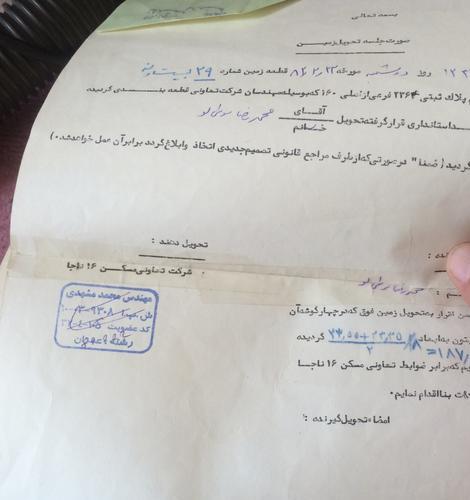 بسمه تعالی
صورتجلسه تحویل زمین
روز دوشنبه مورخه ۸۲/۲/۲۲ قطعه زمین شماره ۲۹ بیست و نه
پلاك ثبتی ۲۳۶۴ فرعی از اصلی ۱۶۰ که بوسیله مهندسان شرکت تعاونی قطعه بندی گردیده
استانداری قرار گرفته تحویل آقای خانم محمدرضا
گردید (ضمنا" در صورتی که از طرف مراجع قانونی تصمیم جدیدی اتخاذ و ابلاغ گردد برابر آن عمل خواهد شد.)
تحویل دهنده :
شرکت تعاونی مسکن ۱۶ ناجا
مهندس محمد مشهدی
کد عضویت
رشته
اقرار به تحویل زمین فوق که در چهار گوشه آن
بتون به ابعاد ۲۴,۵۵+۲۲,۳۵ / ۲ × ۸ = ۱۸۷/ گردیده
که برابر ضوابط تعاونی مسکن ۱۶ ناجا
بنا اقدام نمایم.
امضاء تحویل گیرنده :